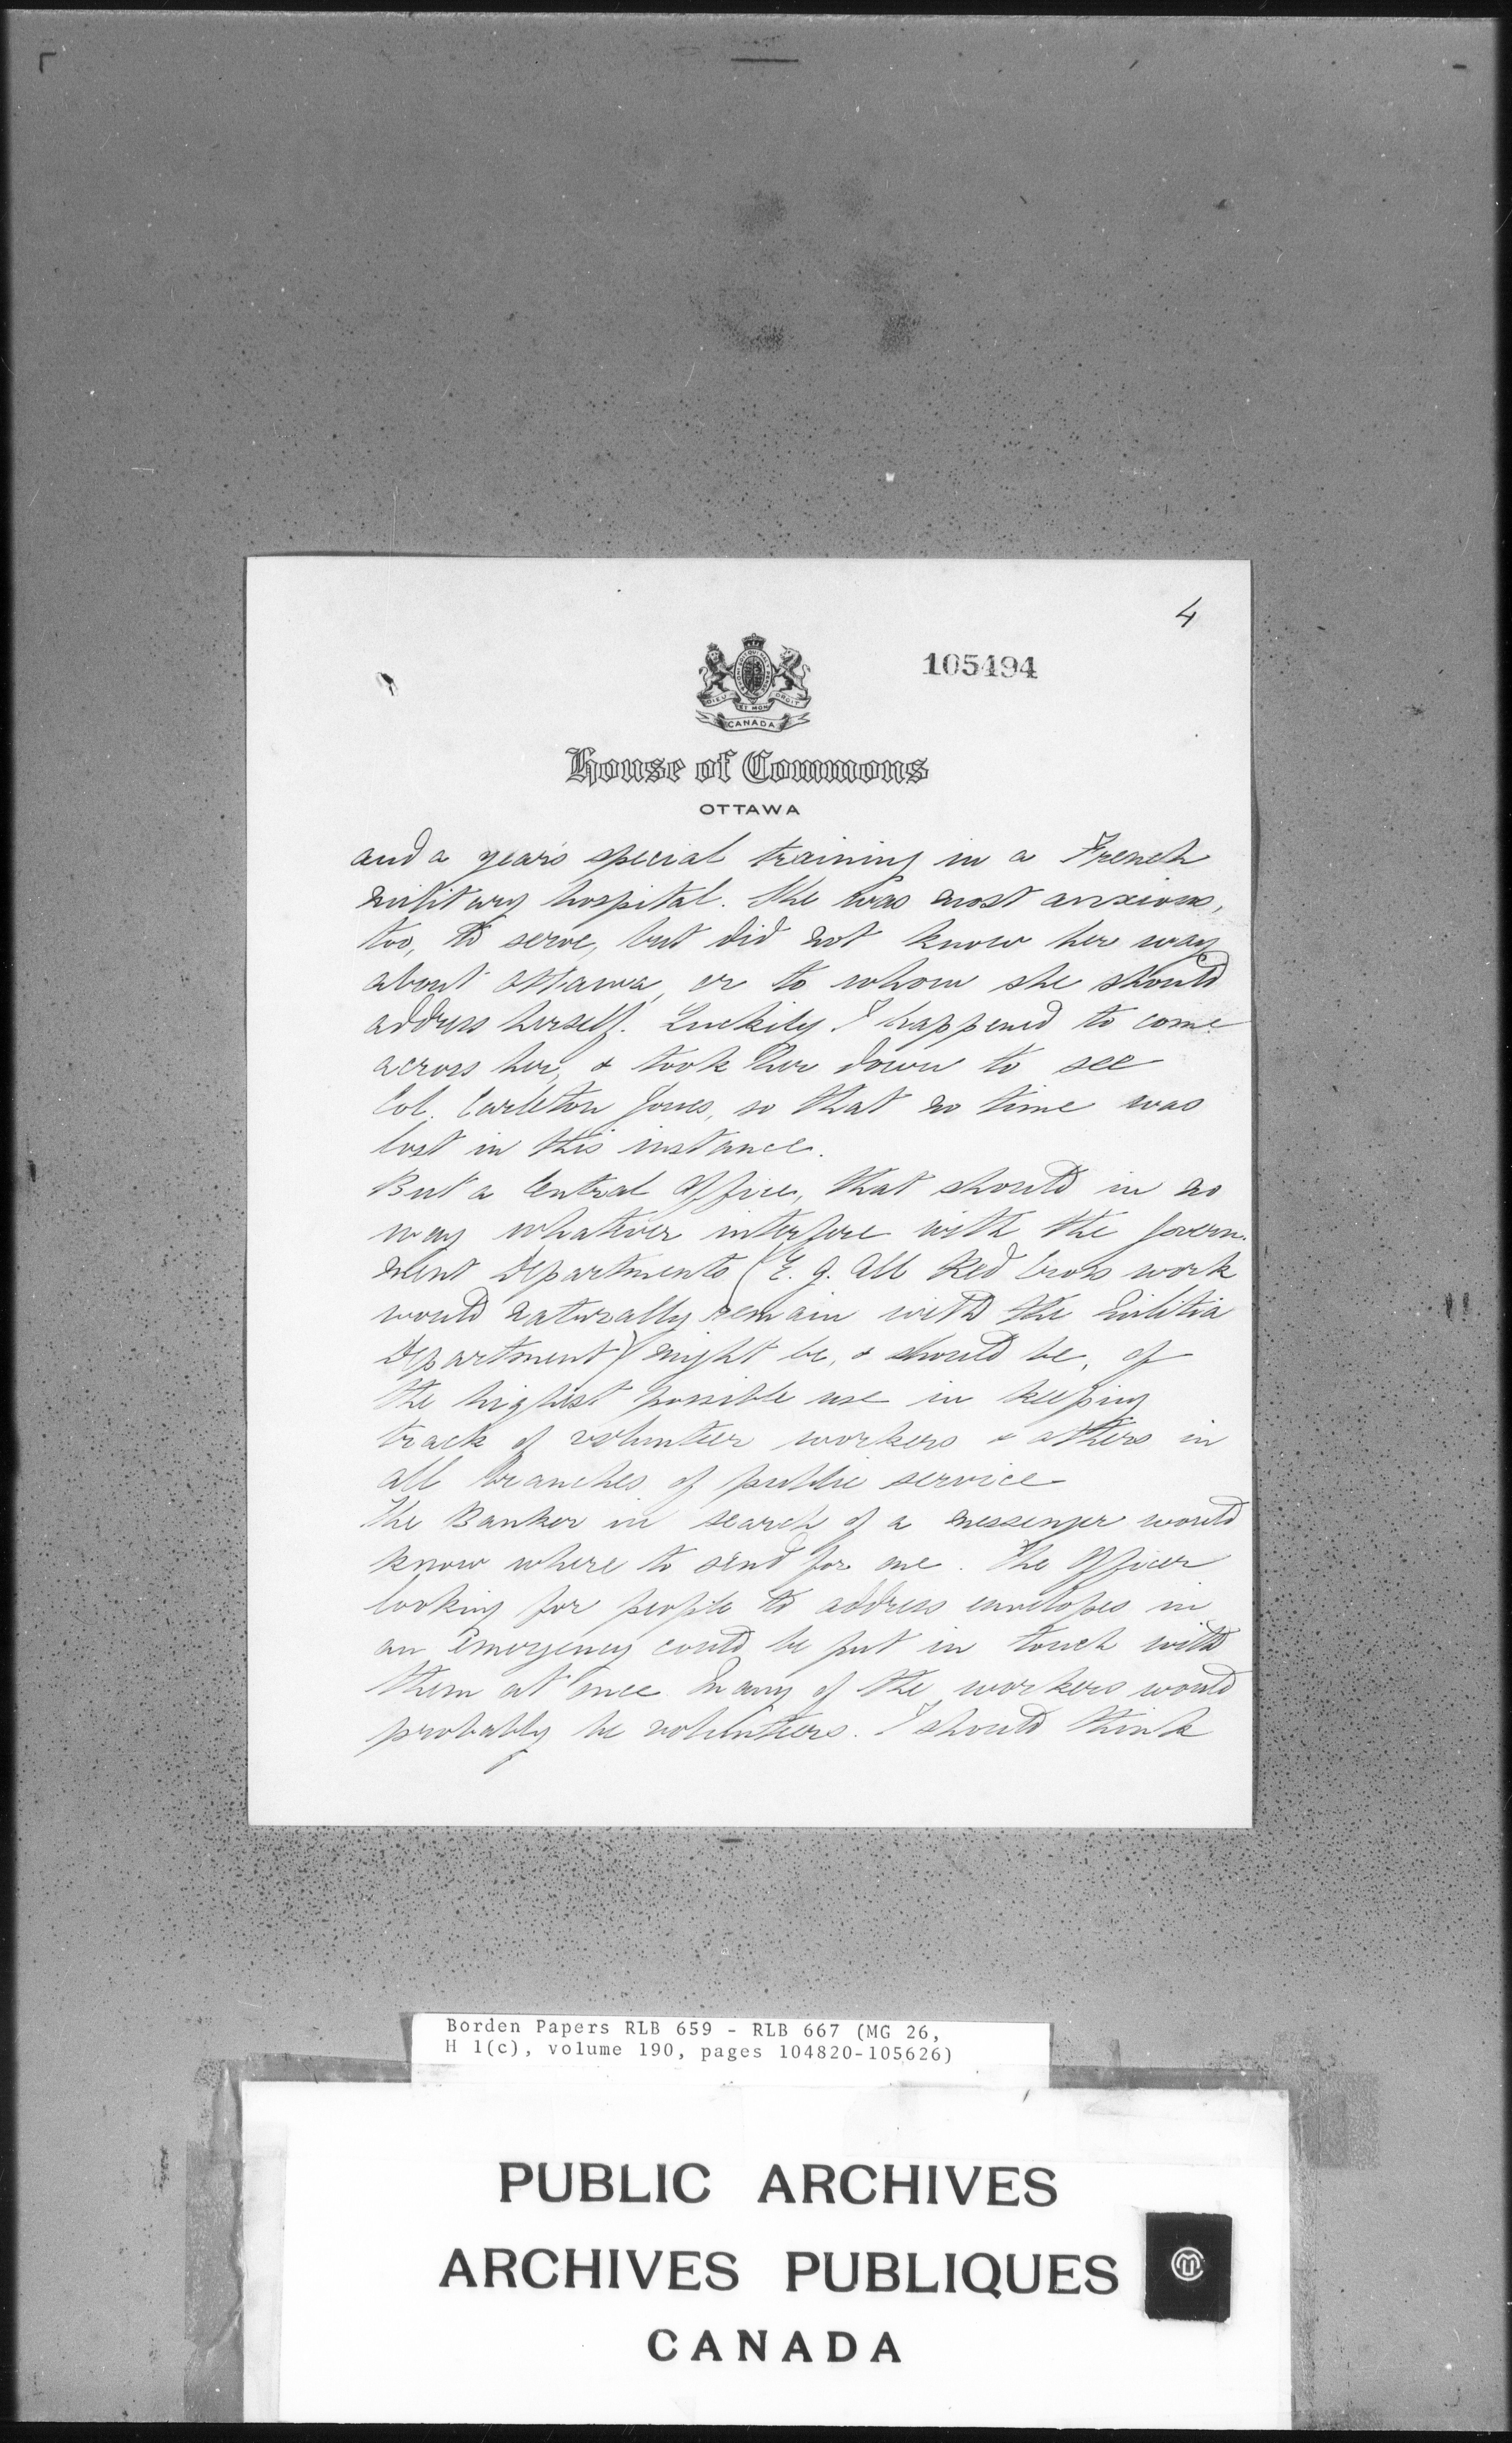 4
105494
DIEU ET MON DROIT
CANADA
House of Commons
OTTAWA
and a year's special training in a French
military hospital. She was most anxious,
too, to serve, but did not know her way
about Ottawa, or to whom she should
address herself. Luckily I happened to come
across her, & took her down to see
Col. Carleton Jones, so that no time was
lost in this instance.
But a Central Office, that should in no
way whatever interfere with the Govern-
ment Departments (E. g. All Red Cross work
would naturally remain with the Militia
Department) might be, & should be, of
the highest possible use in keeping
track of volunteer workers & others in
all branches of public service
The Banker in search of a messenger would
know where to send for one. The Officer
looking for people to address envelopes in
an emergency could be put in touch with
them at once. Many of the workers would
probably be volunteers. I should think
Borden Papers RLB 659 - RLB 667 (MG 26,
H 1(c), volume 190, pages 104820-105626)
PUBLIC ARCHIVES
ARCHIVES PUBLIQUES
CANADA